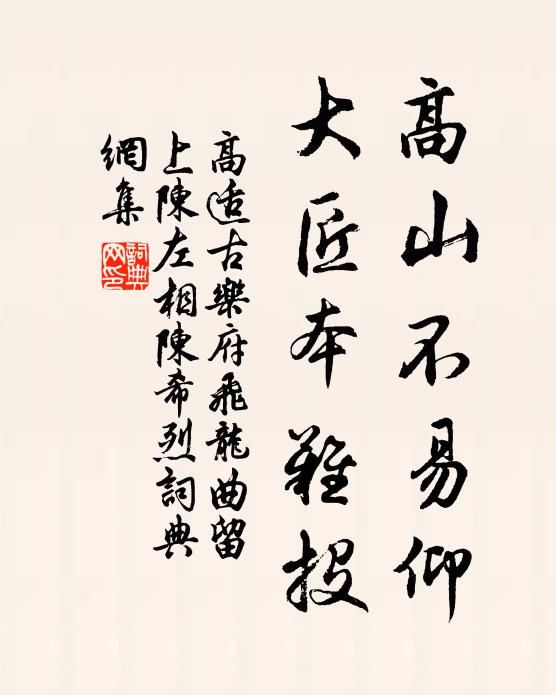 高山不易仰
大匠本難投
高适古樂府飛龍曲留
上陳左相陳希烈詞典
網集
詞典網印